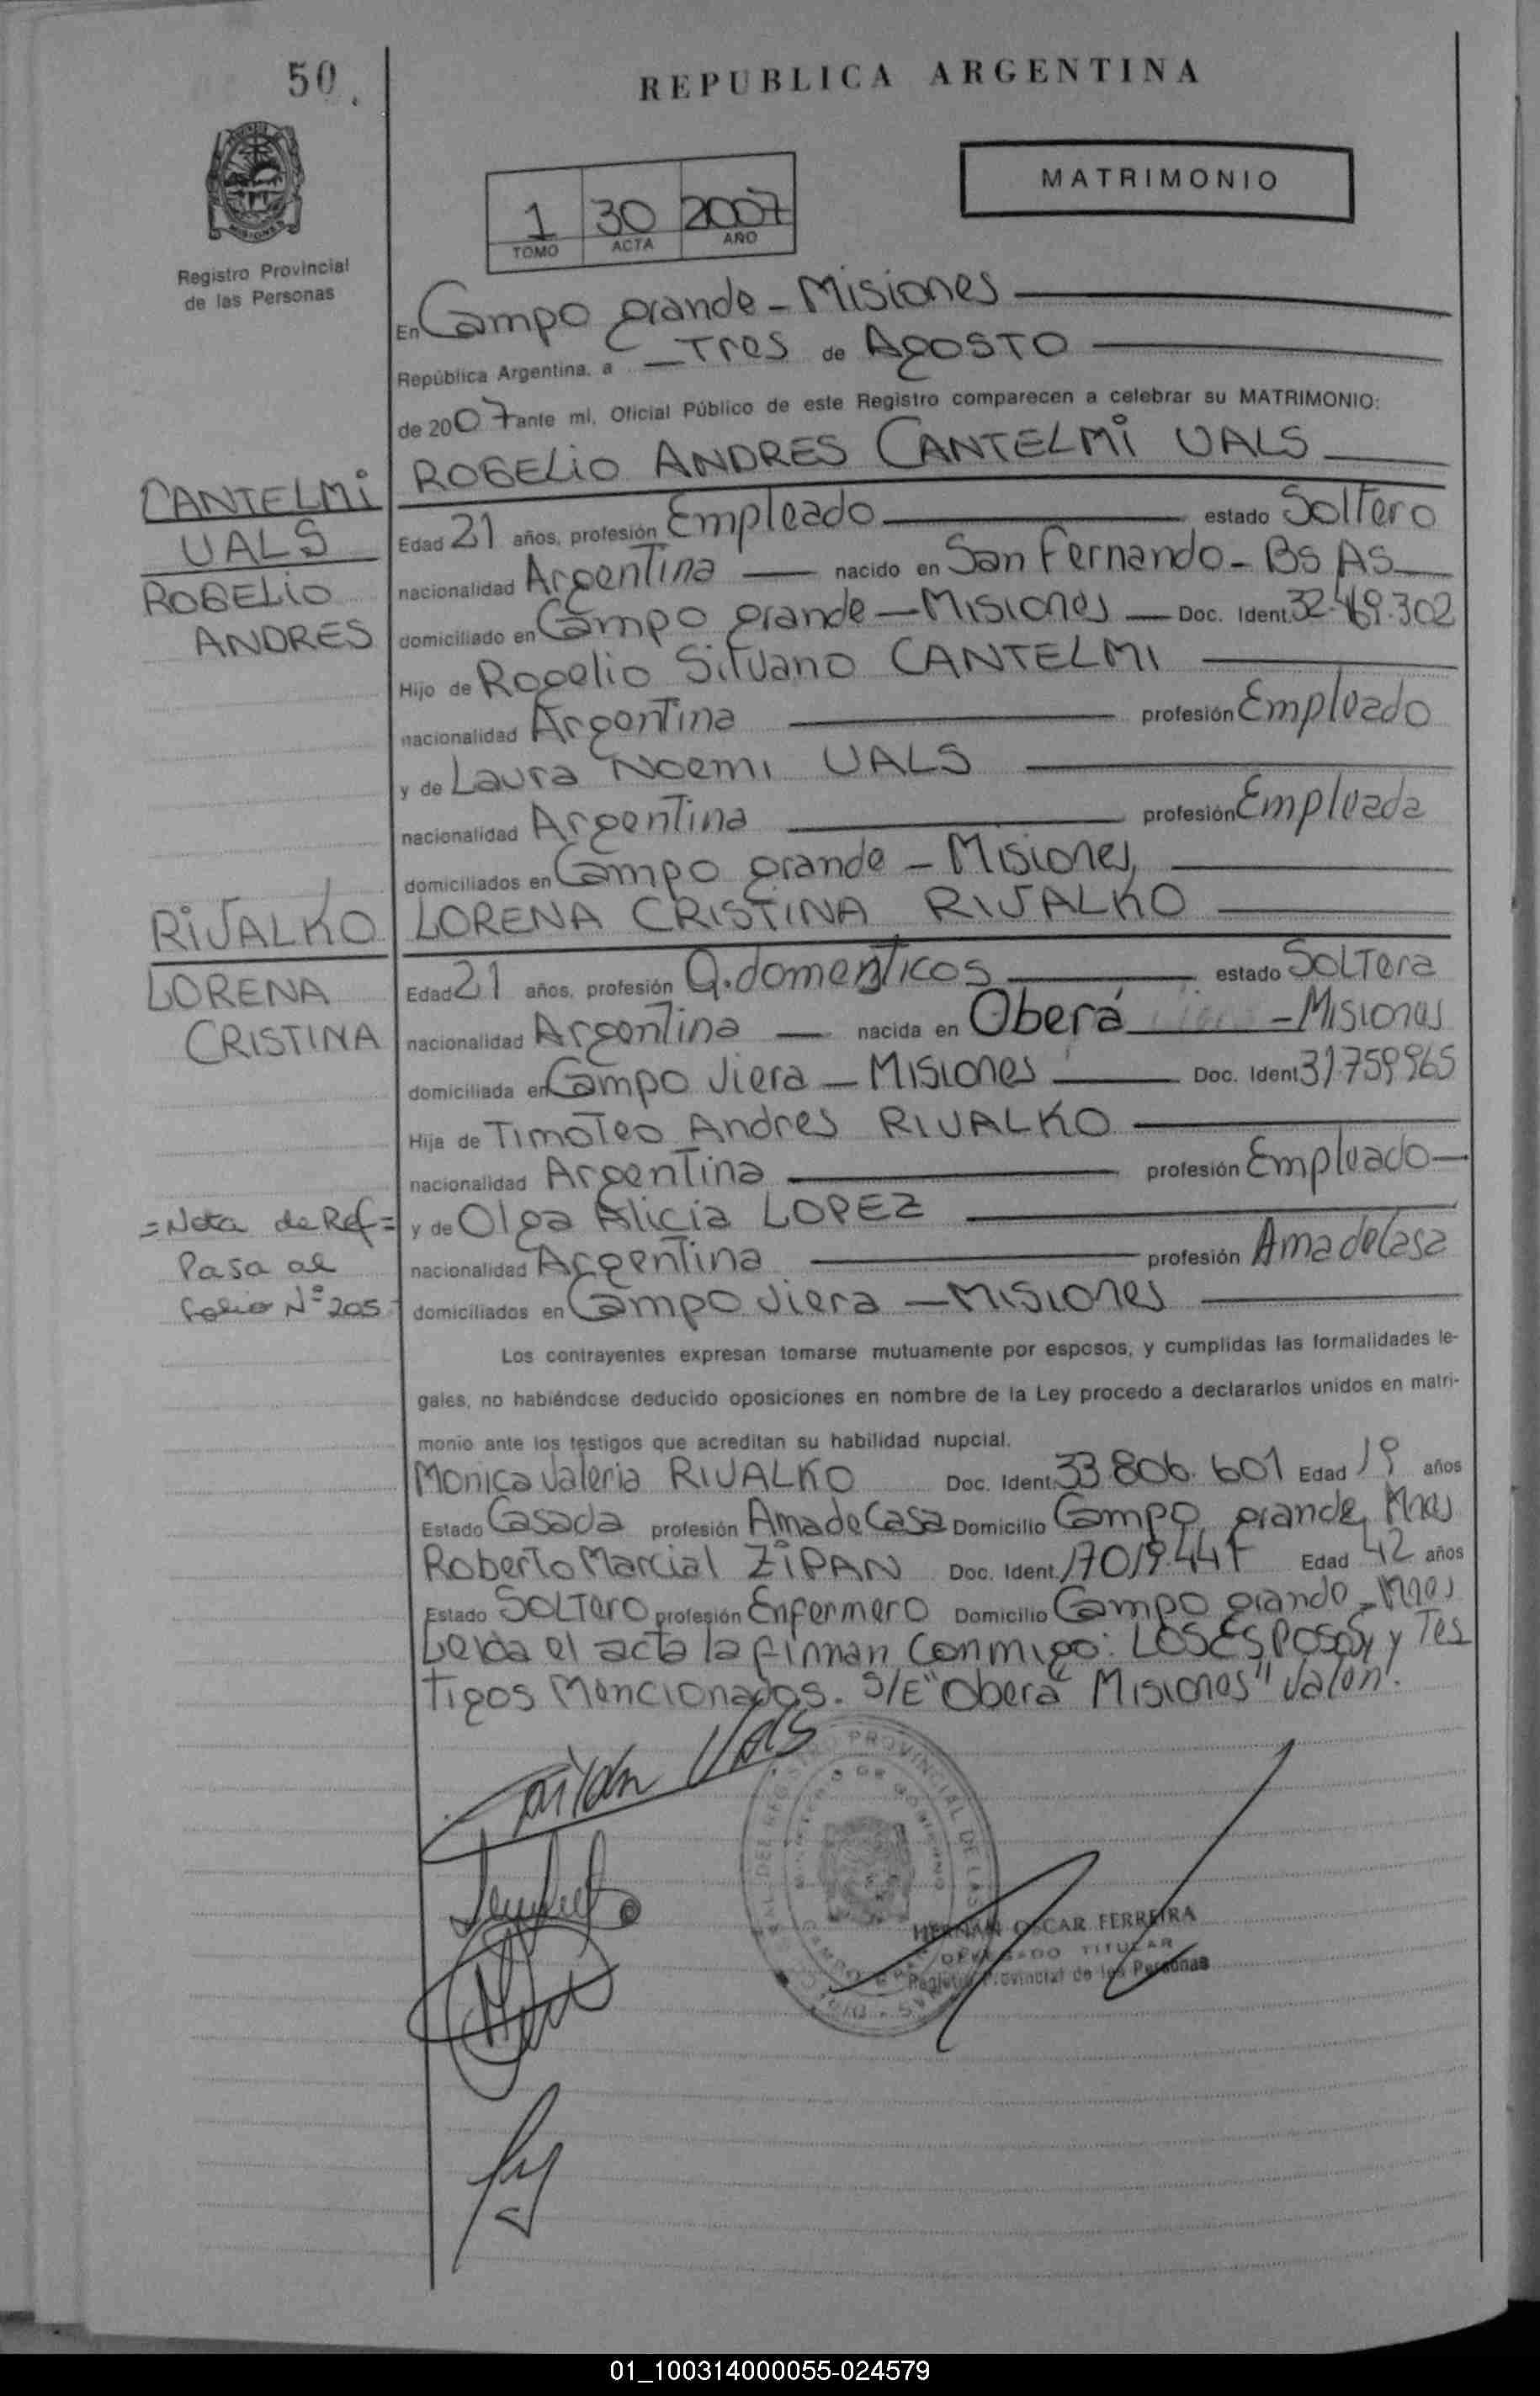 50.
REPUBLICA ARGENTINA
MATRIMONIO
1 30 2007
TOMO ACTA AÑO
Registro Provincial
de las Personas
En Campo grande - Misiones
República Argentina, a Tres de Agosto
de 2007 ante mí, Oficial Público de este Registro comparecen a celebrar su MATRIMONIO:
ROGELIO ANDRES CANTELMI UALS
CANTELMI
UALS
ROGELIO
ANDRES
Edad 21 años, profesión Empleado estado Soltero
nacionalidad Argentina nacido en San Fernando - Bs As
domiciliado en Campo grande - Misiones Doc. Ident. 32.469.302
Hijo de Rogelio Silvano CANTELMI
nacionalidad Argentina profesión Empleado
y de Laura Noemi UALS
nacionalidad Argentina profesión Empleada
domiciliados en Campo grande - Misiones
RIVALKO LORENA CRISTINA RIVALKO
LORENA
CRISTINA
Edad 21 años, profesión Q. domesticos estado Soltera
nacionalidad Argentina nacida en Oberá - Misiones
domiciliada en Campo Viera - Misiones Doc. Ident. 31.759965
Hija de Timoteo Andres RIVALKO
nacionalidad Argentina profesión Empleado
y de Olga Alicia LOPEZ
nacionalidad Argentina profesión Ama de Casa
domiciliados en Campo Viera - Misiones
= Nota de Ref =
Pasa al
folio Nº 205
Los contrayentes expresan tomarse mutuamente por esposos, y cumplidas las formalidades le-
gales, no habiéndose deducido oposiciones en nombre de la Ley procedo a declararlos unidos en matri-
monio ante los testigos que acreditan su habilidad nupcial.
Monica Valeria RIVALKO Doc. Ident. 33.806.601 Edad 19 años
Estado Casada profesión Ama de Casa Domicilio Campo grande Mnes
Roberto Marcial ZIPAN Doc. Ident. Edad 42 años
Estado Soltero profesión Enfermero Domicilio Campo grande - Mnes
Leida el acta la firman Conmigo: LOS ESPOSOS y Tes
tigos Mencionados. S/E "Oberá Misiones" Valen.
HERNAN OSCAR FERREIRA
DELEGADO TITULAR
Registro Provincial de las Personas
01_100314000055-024579